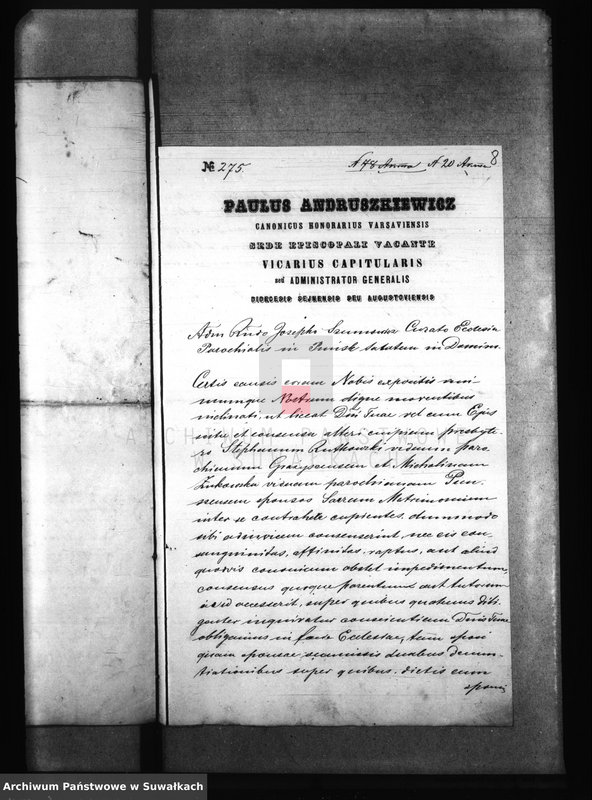 № 275.
N 48 Anna N 20 Anna
8
PAULUS ANDRUSZKIEWICZ
CANONICUS HONORARIUS VARSAVIENSIS
SEDE EPISCOPALI VACANTE
VICARIUS CAPITULARIS
seu ADMINISTRATOR GENERALIS
DIOECESIS SEJNENSIS SEU AUGUSTOVIENSIS
Adm Rndo Josepho Curato Ecclesiae
Parochialis in Puńsk salutem in Domino.
Certis causis coram Nobis expositis ani-
mumque Nostrum digne moventibus
inclinati, ut liceat Dni Tuae vel cum Ejus
scitu et consensu alteri cuipiam presbyte-
ro Stephanum Rutkowski viduum paro-
chianum et Michalinam
Żukowska viduam parochianam Pun-
scensem sponsos Sacrum Matrimonium
inter se contrahere cupientes, dummodo
sibi adinvicem consenserint, nec eis con-
sanguinitas, affinitas, raptus, aut aliud
quodvis canonicum obstet impedimentum,
consensus quoque parentum aut tutorum
accesserit, super quibus quatenus dili-
genter inquiratur conscientiam Dnis Tuae
obligamus in facie Ecclesiae, tum sponsi
quam sponsae, duabus denun-
tiationibus super quibus, dictis cum
sponsis
ARCHIWUM PAŃSTWOWE
W SUWAŁKACH
Archiwum Państwowe w Suwałkach